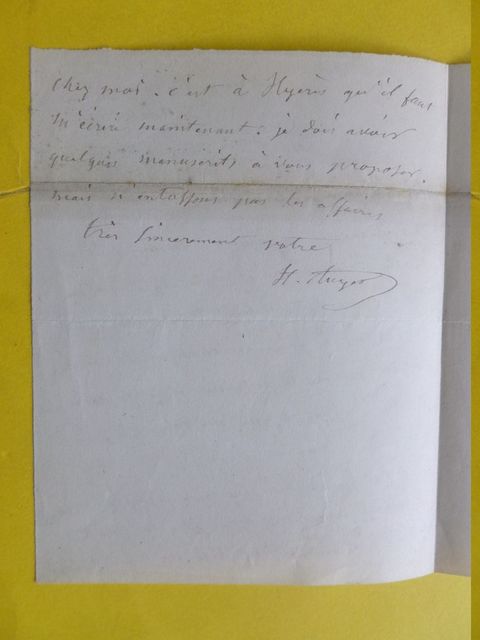 chez moi. c'est à Hyères qu'il faut
m'écrire maintenant. je dois avoir
quelques manuscrits à vous proposer.
mais n'entassons pas les affaires
très sincèrement votre
H.